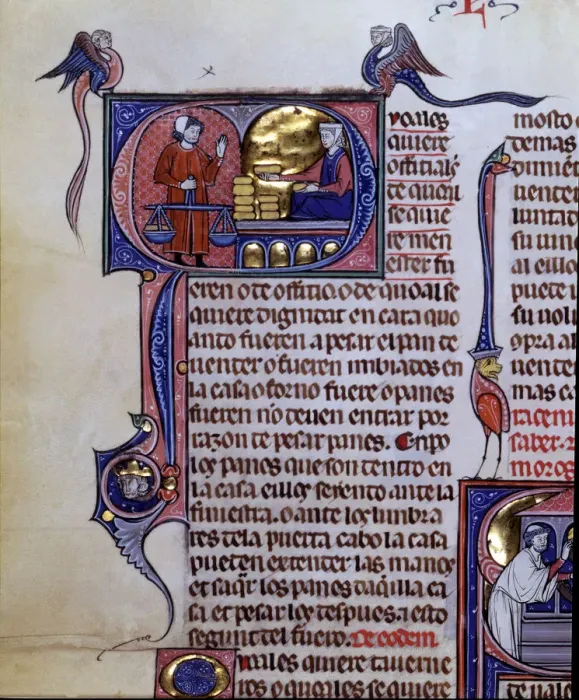 voales
quiere
offitiales
de quoal
se quie
se men
ester fu
eren o de offitio. o de quoal se
quiere dignidat en cara quo
anto fueren a pesar el pan de
uender o fueren imbiados en
la casa o forno fuere o panes
fueren no deuen entrar por
razon de pesar panes. Enpo
los panes que son dentro en
la casa eillos seyendo ante la
finiestra. o ante los lumbra
res de la puerta cabo la casa
pueden extender las manos
et saqar los panes daqilla ca
sa et pesar los despues. a esto
segunt del fuero. De eodem
voales quiere tauerne
ros o quoales se quiere
mosto
demas
uender
luntad
su uino
al eillo
puede
su uol
uende
mas
saber.
moros